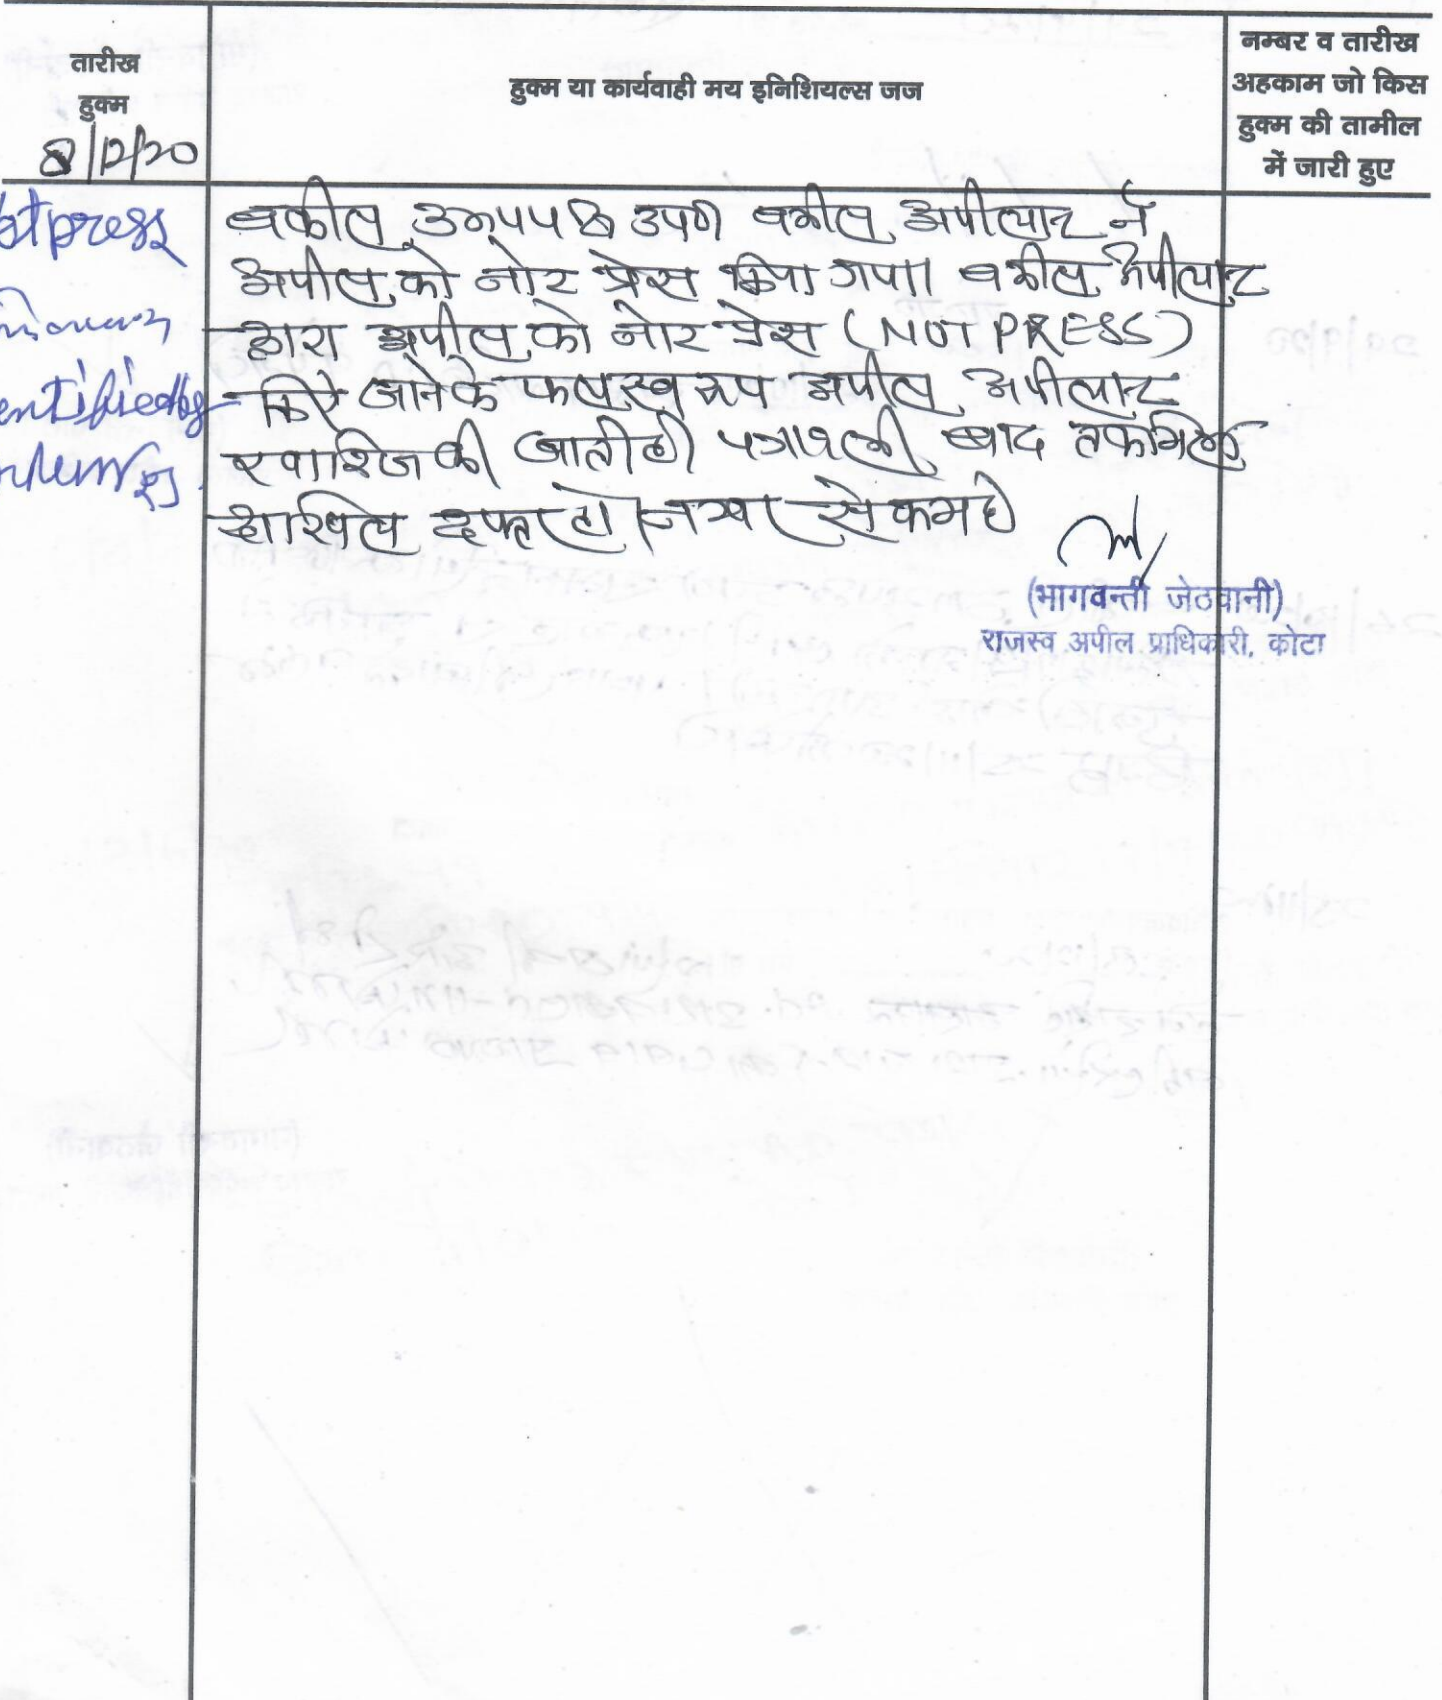 तारीख
हुक्म
हुक्म या कार्यवाही मय इनिशियल्स जज
नम्बर व तारीख
अहकाम जो किस
हुक्म की तामील
में जारी हुए
8/12/20
press
वकील उभयपक्ष उप0 वकील अपीलान्ट ने
अपील को नोट प्रेस किया गया। वकील अपीलान्ट
द्वारा अपील को नोट प्रेस (NOT PRESS)
किये जाने के फलस्वरूप अपील अपीलान्ट
खारिज की जाती है। पत्रावली बाद तकमिल
दाखिल दफ्तर हो। नम्बर से कम हो
(भागवन्ती जेठवानी)
राजस्व अपील प्राधिकारी, कोटा